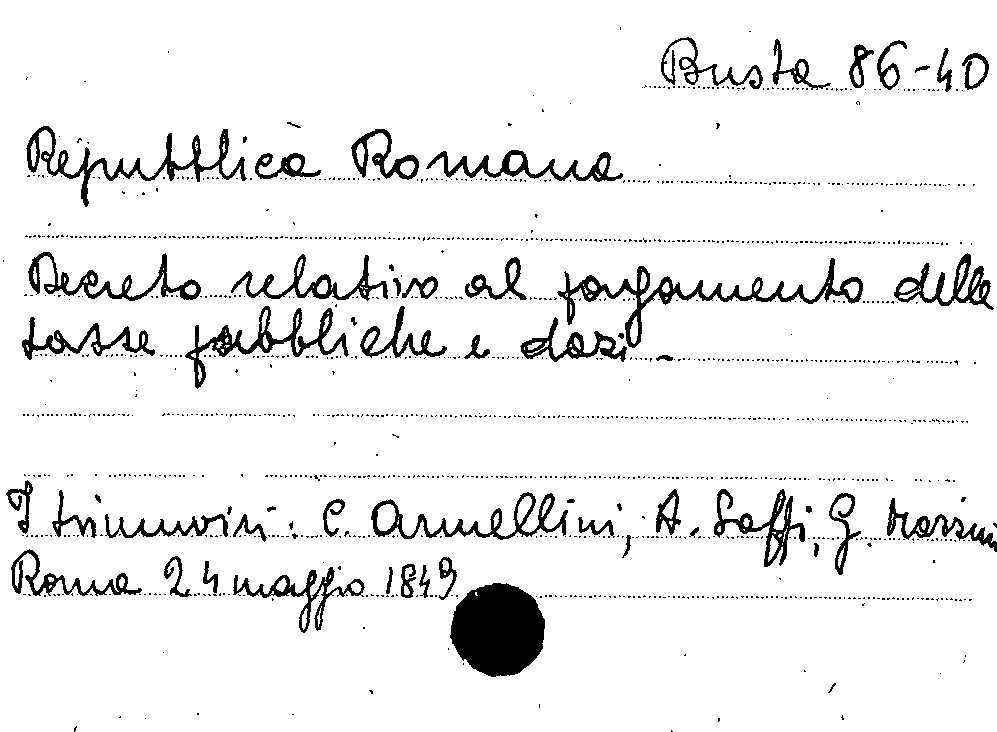 Busta 86-40
Repubblica Romana
Decreto relativo al pagamento delle
tasse pubbliche e dazi -
I triumviri: C. Armellini, A. Saffi, G. Mazzini
Roma 24 maggio 1849